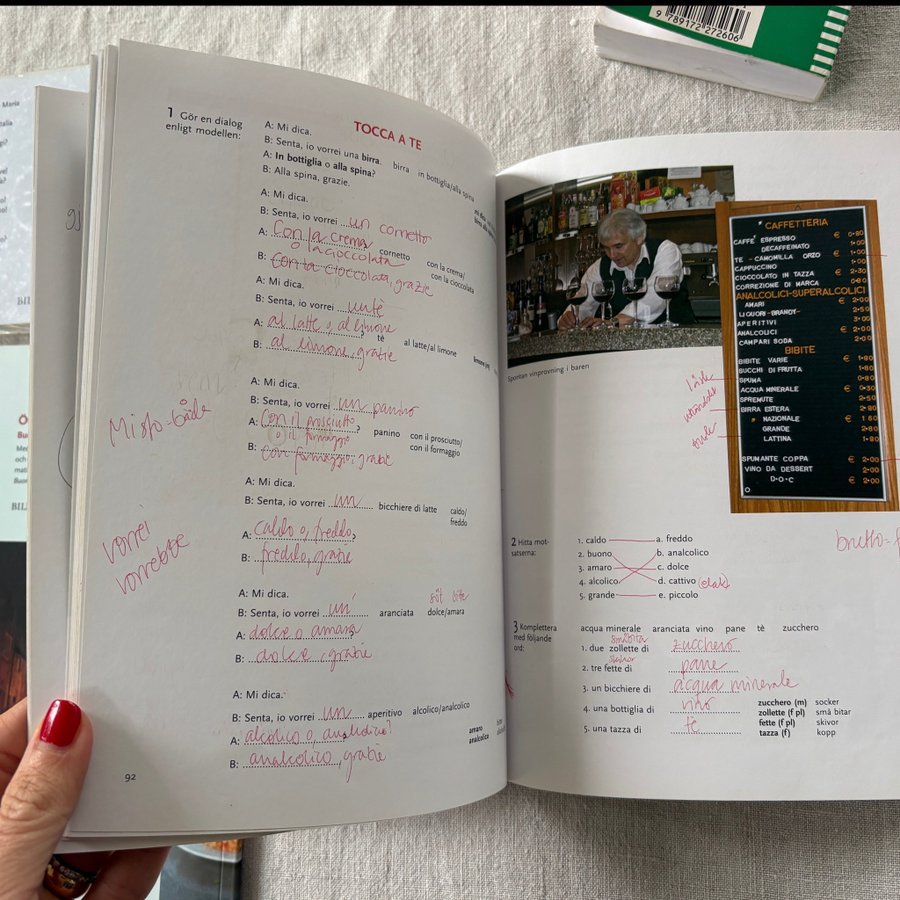 9 789172 272606
Maria
TOCCA A TE
1 Gör en dialog
enligt modellen:
A: Mi dica.
B: Senta, io vorrei una birra. birra in bottiglia/alla spina
A: In bottiglia o alla spina?
B: Alla spina, grazie.
A: Mi dica.
B: Senta, io vorrei un cornetto
A: Con la crema cornetto con la crema/
o la cioccolata con la cioccolata
B: con la cioccolata, grazie
A: Mi dica.
B: Senta, io vorrei un tè
A: al latte o, al limone tè al latte/al limone
B: al limone, gratie
A: Mi dica.
B: Senta, io vorrei un panino
A: con il prosciutto, panino con il prosciutto/
o il formaggio con il formaggio
B: con formaggio, gratie
A: Mi dica.
B: Senta, io vorrei un bicchiere di latte caldo/
freddo
A: caldo o, freddo,
B: freddo, gratie
A: Mi dica.
söt
B: Senta, io vorrei un aranciata dolce/amara
A: dolce o amara
B: dolce, gratie
A: Mi dica.
B: Senta, io vorrei un aperitivo alcolico/analcolico
A: alcolico o, analcolico? amaro
analcolico
B: analcolico, gratie
vorrei
vorrebbe
92
CAFFETTERIA
CAFFÈ ESPRESSO € 0·80
DECAFFEINATO 1·00
TE - CAMOMILLA ORZO € 1·00
CAPPUCCINO 1·00
CIOCCOLATO IN TAZZA € 2·30
CORREZIONE DI MARCA 0·80
ANALCOLICI-SUPERALCOLICI
AMARI € 2·00
LIQUORI-BRANDY 2·50
APERITIVI 3·00
ANALCOLICI € 2·00
CAMPARI SODA 2·00
BIBITE
BIBITE VARIE € 1·80
SUCCHI DI FRUTTA 1·80
SPUMA 0·80
ACQUA MINERALE € 0·30
SPREMUTE 2·50
BIRRA ESTERA 2·80
" NAZIONALE € 1 60
GRANDE 2·80
LATTINA 1·80
SPUMANTE COPPA € 2·00
VINO DA DESSERT 2·00
D·O·C € 2·00
Spontan vinprovning i baren
2 Hitta mot-
satserna:
1. caldo a. freddo
2. buono b. analcolico
3. amaro c. dolce
4. alcolico d. cattivo (elak)
5. grande e. piccolo
3 Komplettera
med följande
ord:
acqua minerale aranciata vino pane tè zucchero
småbitar
1. due zollette di zucchero
skivor
2. tre fette di pane
3. un bicchiere di acqua minerale
4. una bottiglia di vino
5. una tazza di tè
zucchero (m) socker
zollette (f pl) små bitar
fette (f pl) skivor
tazza (f) kopp